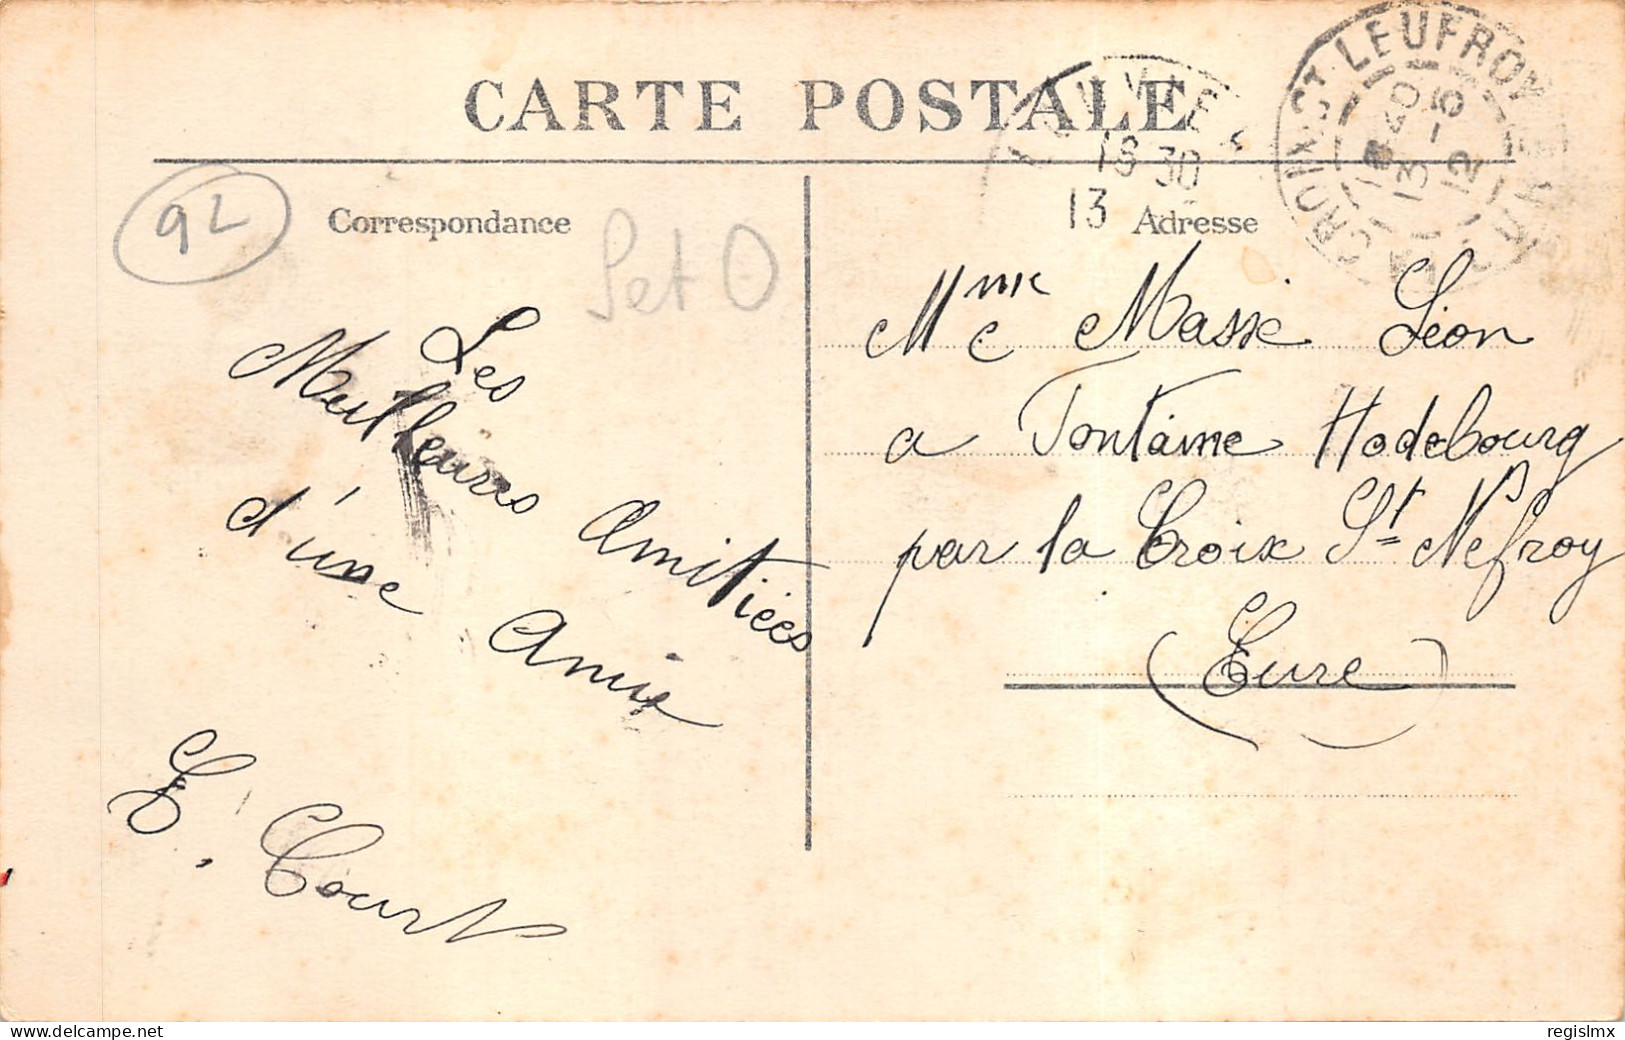 CARTE POSTALE
CROIX-ST LEUFROY
13-5
12
18 30
13
92
Correspondance
Set O
Adresse
Les
Meilleures Amitiées
d'une Amie
E. Court
Mme Masse Léon
a Fontaine Hodebourg
par la Croix St Nefroy
(Eure)
www.delcampe.net
regislmx